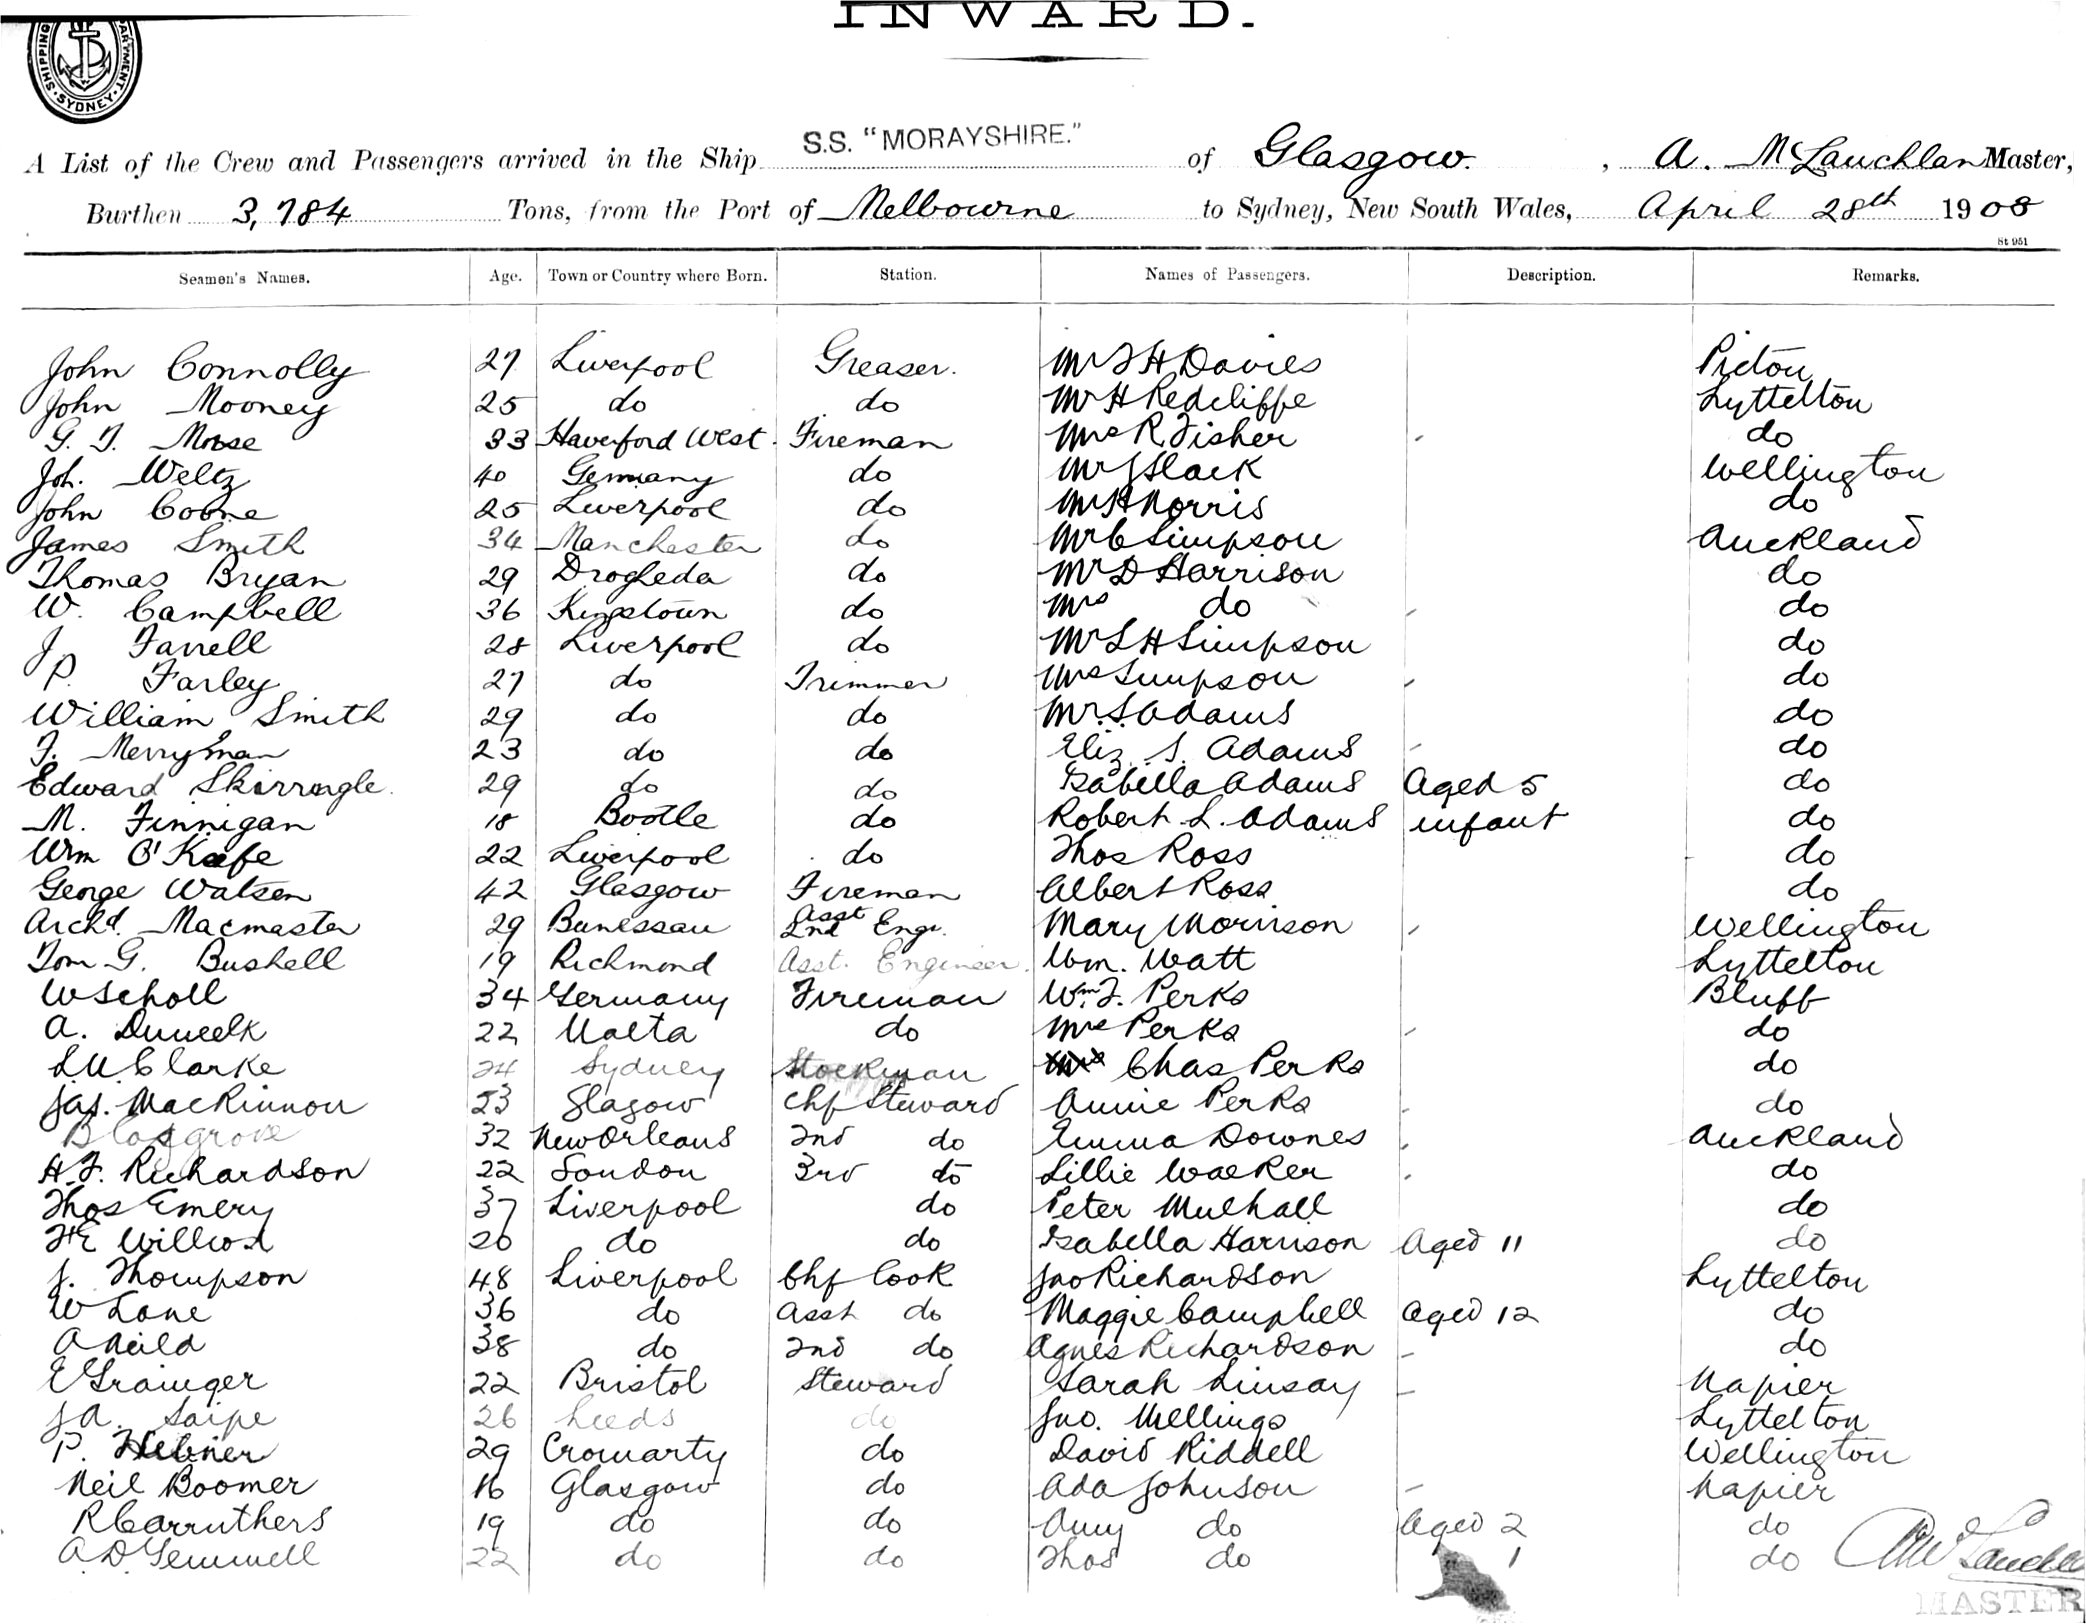 INWARD.
SHIPPING DEPARTMENT SYDNEY
A List of the Crew and Passengers arrived in the Ship S.S. "MORAYSHIRE." of Glasgow. , A. McLauchlan Master,
Burthen 3,784 Tons, from the Port of Melbourne to Sydney, New South Wales, April 28th 1908
St 951
Seamen's Names. Age. Town or Country where Born. Station. Names of Passengers. Description. Remarks.
John Connolly 27 Liverpool Greaser. Mr H Davies Picton
John Mooney 25 do do Mr H Redcliffe Lyttelton
G. T. Morse 33 Haverford West. Fireman Mrs R Fisher do
Joh. Weltz 40 Germany do Mr J Slack Wellington
John Coone 25 Liverpool do Mr H Norris do
James Smith 34 Manchester do Mr C Simpson Auckland
Thomas Bryan 29 Drogheda do Mr D Harrison do
W. Campbell 36 Kingstown do Mrs do do
J. Farrell 28 Liverpool do Mr L H Simpson do
P. Farley 27 do Trimmer Mrs Simpson do
William Smith 29 do do Mr. S. Adams do
F. Merryman 23 do do Eliz. S. Adams do
Edward Skirrongle. 29 do do Isabella Adams Aged 5 do
M. Finnigan 18 Bootle do Robert L. Adams infant do
Wm O'Keefe 22 Liverpool do Thos Ross do
George Watsen 42 Glasgow Fireman Albert Ross do
Archd. Macmaster 29 Bunessan Asst 2nd Engr. Mary Morrison Wellington
Tom G. Bushell 19 Richmond Asst. Engineer. Wm. Watt Lyttelton
W Scholl 34 Germany Fireman Wm. F. Perks Bluff
A. 22 Malta do Mrs Perks do
Clarke 24 Sydney Stockman Chas Perks do
Jas. MacKinnon 23 Glasgow Chf Steward Annie Perks do
Blosgrove 32 New Orleans 2nd do Emma Downes Auckland
H. F. Richardson 22 London 3rd do Lillie Walker do
Thos Emery 37 Liverpool do Peter Mulhall do
20 do do Isabella Harrison Aged 11 do
J. Thompson 48 Liverpool Chf Cook Jno Richardson Lyttelton
W Lane 36 do Asst do Maggie Campbell Aged 12 do
A Neild 38 do 2nd do Agnes Richardson do
E Grainger 22 Bristol Steward Sarah Linsay Napier
J A. Saipe 26 Leeds do Jno. Mellings Lyttelton
P. Hebner 29 Cromarty do David Riddell Wellington
Neil Boomer 16 Glasgow do Ada Johnson Napier
R Carruthers 19 do do Amy do Aged 2 do
A D Gemmell 22 do do Thos do 1 do
A McLauchlan
MASTER